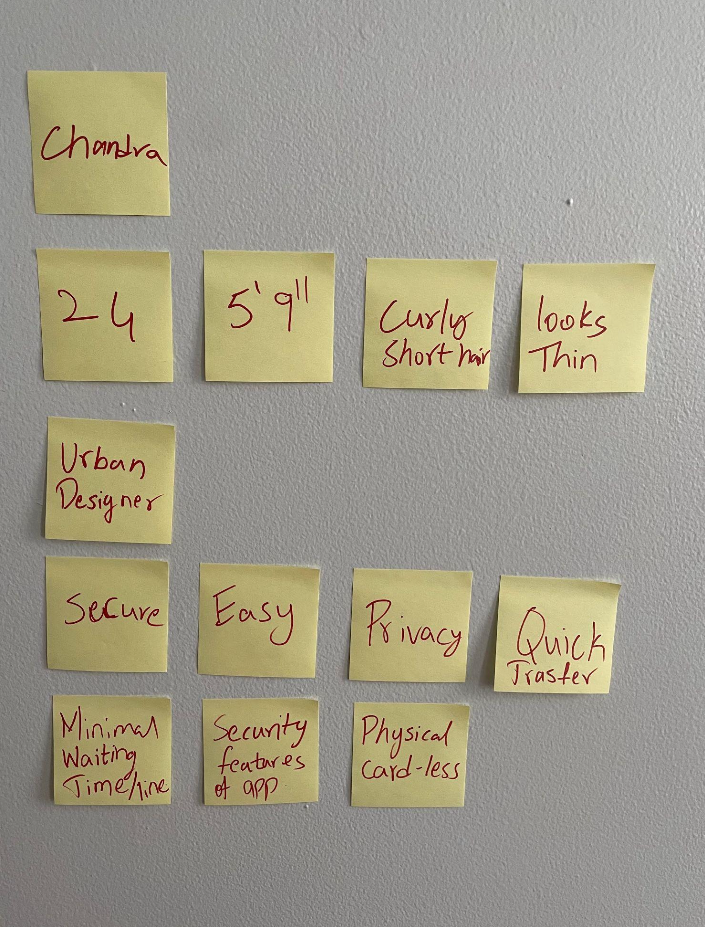 Chandra
24
5'9"
Curly
Short hair
looks
Thin
Urban
Designer
Secure
Easy
Privacy
Quick
Trasfer
Minimal
Waiting
Time/line
Security
features
of app
Physical
Card-less